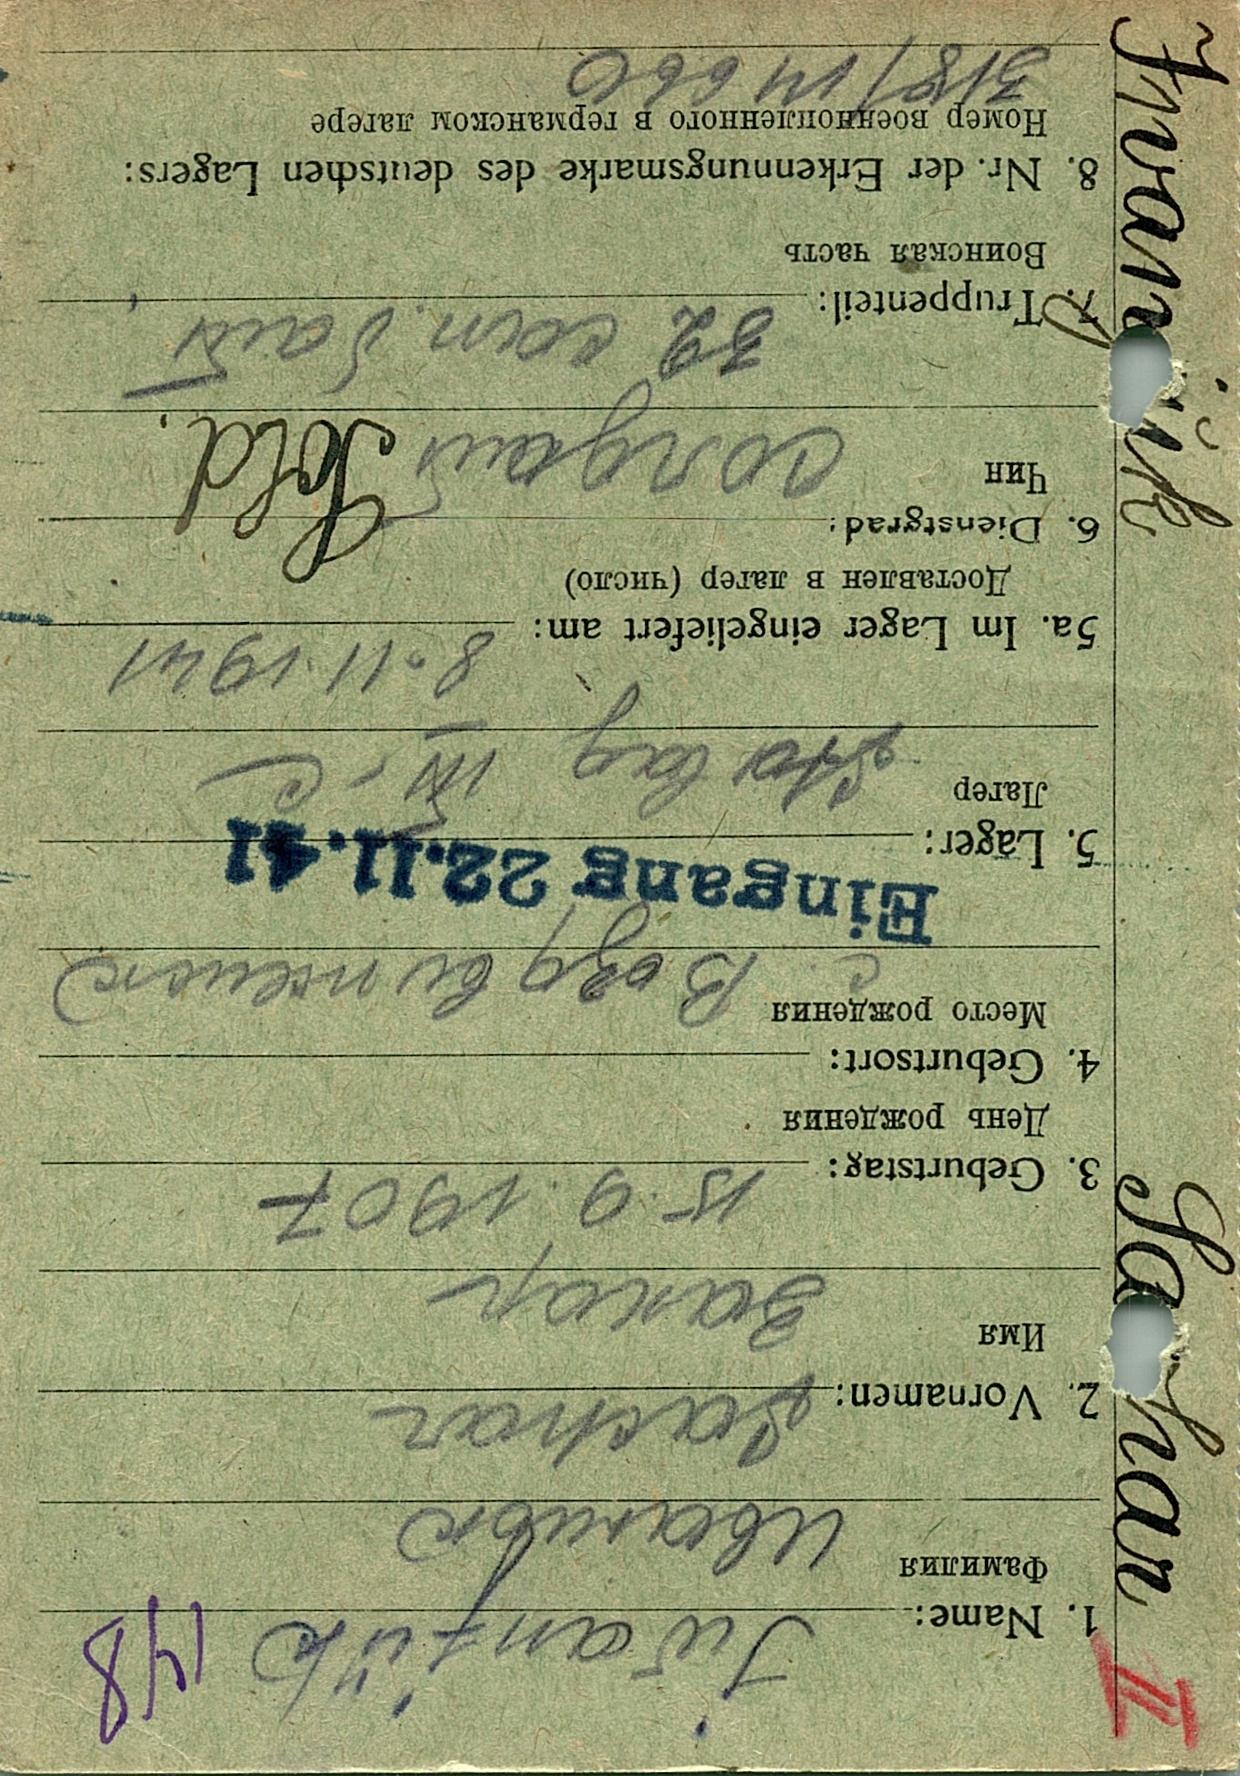 148
II
1. Name: Iwanjük
Фамилия
Иванюк
2. Vornamen: Sachar
Имя
Захар
3. Geburtstag: 15.9.1907
День рождения
4. Geburtsort:
Место рождения
с.
Eingang 22.11.41
5. Lager: Stalag III-C
Лагер
5a. Im Lager eingeliefert am: 8.11.1941
Доставлен в лагер (число)
6. Dienstgrad:
Чин
солдат
Sold.
7. Truppenteil: 32
Воинская часть
8. Nr. der Erkennungsmarke des deutschen Lagers:
Номер военнопленного в германском лагере
318/14660
Sa har
Iwan ük